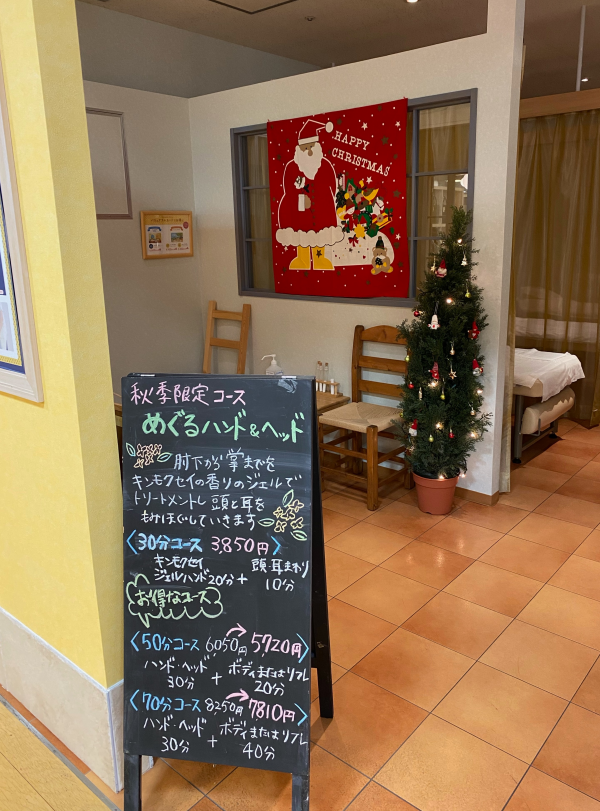 HAPPY
CHRISTMAS
秋季限定コース
めぐるハンド&ヘッド
肘下から掌までを
キンモクセイの香りのジェルで
トリートメントし 頭と耳を
もみほぐしていきます
〈30分コース 3,850円〉
キンモクセイ
ジェルハンド20分 + 頭・耳まわり 10分
お得なコース
〈50分コース 6050円→5720円〉
ハンド・ヘッド 30分 + ボディまたはリフレ 20分
〈70分コース 8250円→7810円〉
ハンド・ヘッド 30分 + ボディまたはリフレ 40分